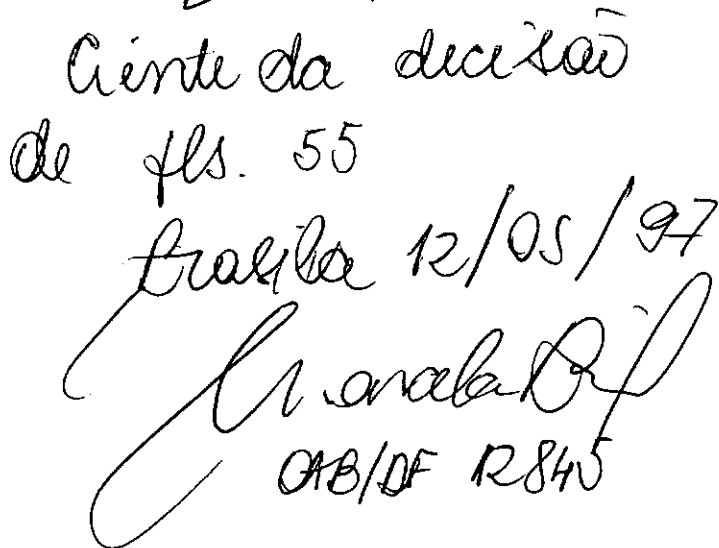 Ciente da decisão
de fls. 55
Brasília 12/05/97
OAB/DF 12845